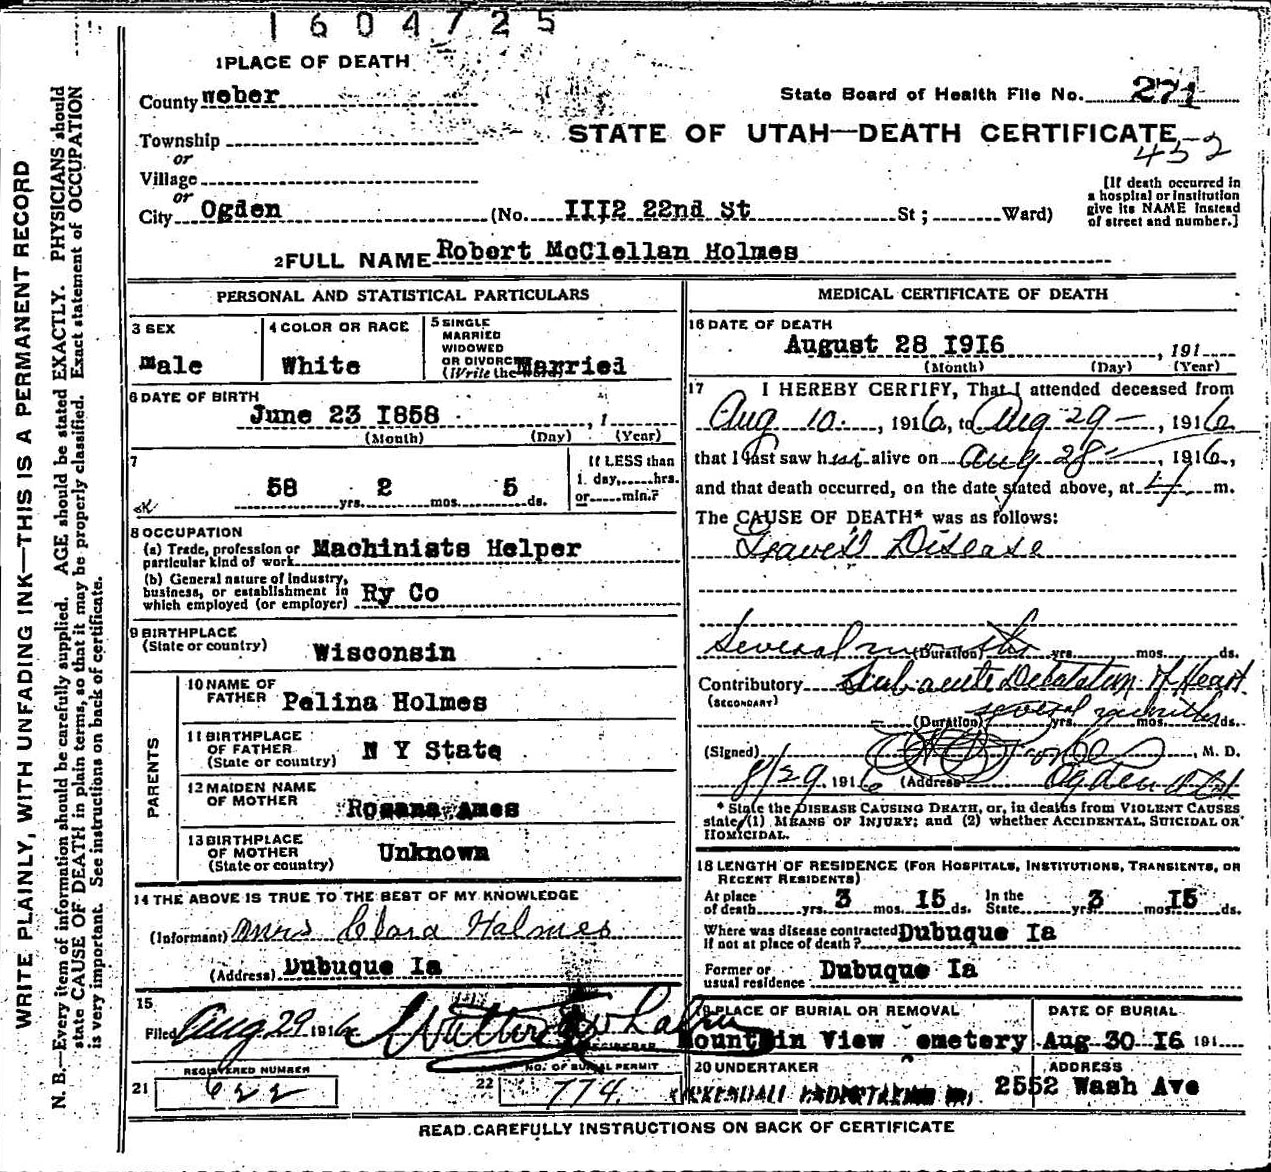 1604725
1 PLACE OF DEATH
County Weber
State Board of Health File No. 271
Township
or
STATE OF UTAH—DEATH CERTIFICATE
452
Village
or
City Ogden (No. III2 22nd St St; Ward)
[If death occurred in
a hospital or institution
give its NAME instead
of street and number.]
2 FULL NAME Robert McClellan Holmes
PERSONAL AND STATISTICAL PARTICULARS
3 SEX
Male
4 COLOR OR RACE
White
5 SINGLE
MARRIED
WIDOWED
OR DIVORCED
(Write the word)
Married
6 DATE OF BIRTH
June 23 I858 , 1
(Month) (Day) (Year)
7
58 yrs. 2 mos. 5 ds.
If LESS than
1 day, hrs.
or min.?
8 OCCUPATION
(a) Trade, profession or
particular kind of work Machinists Helper
(b) General nature of industry,
business, or establishment in
which employed (or employer) Ry Co
9 BIRTHPLACE
(State or country)
Wisconsin
PARENTS
10 NAME OF
FATHER Pelina Holmes
11 BIRTHPLACE
OF FATHER
(State or country) N Y State
12 MAIDEN NAME
OF MOTHER Rosana Ames
13 BIRTHPLACE
OF MOTHER
(State or country) Unknown
14 THE ABOVE IS TRUE TO THE BEST OF MY KNOWLEDGE
(Informant) Mrs Clara Holmes
(Address) Dubuque Ia
15
Filed Aug 29 1916
REGISTRAR
21 REGISTERED NUMBER
622
22 NO. OF BURIAL PERMIT
774.
MEDICAL CERTIFICATE OF DEATH
16 DATE OF DEATH
August 28 I9I6 , 191
(Month) (Day) (Year)
17 I HEREBY CERTIFY, That I attended deceased from
Aug 10. , 1916, to Aug 29 — , 1916
that I last saw him alive on Aug 28 — , 1916,
and that death occurred, on the date stated above, at 4 m.
The CAUSE OF DEATH* was as follows:
Graves Disease
Several months
(Duration) yrs. mos. ds.
Contributory Sub acute Delatation of Heart
(SECONDARY)
several months
(Duration) yrs. mos. ds.
(Signed) , M. D.
8/29, 1916 (Address) Ogden Utah
* State the DISEASE CAUSING DEATH, or, in deaths from VIOLENT CAUSES
state (1) MEANS OF INJURY; and (2) whether ACCIDENTAL, SUICIDAL OR
HOMICIDAL.
18 LENGTH OF RESIDENCE (FOR HOSPITALS, INSTITUTIONS, TRANSIENTS, OR
RECENT RESIDENTS)
At place
of death yrs. 3 mos. I5 ds. In the
State yrs. 3 mos. I5 ds.
Where was disease contracted
If not at place of death? Dubuque Ia
Former or
usual residence Dubuque Ia
19 PLACE OF BURIAL OR REMOVAL
Mountain View emetery
DATE OF BURIAL
Aug 30 I6 191
20 UNDERTAKER
ADDRESS
2552 Wash Ave
READ CAREFULLY INSTRUCTIONS ON BACK OF CERTIFICATE
WRITE PLAINLY, WITH UNFADING INK—THIS IS A PERMANENT RECORD
N. B.—Every item of information should be carefully supplied. AGE should be stated EXACTLY. PHYSICIANS should
state CAUSE OF DEATH in plain terms, so that it may be properly classified. Exact statement of OCCUPATION
is very important. See instructions on back of certificate.